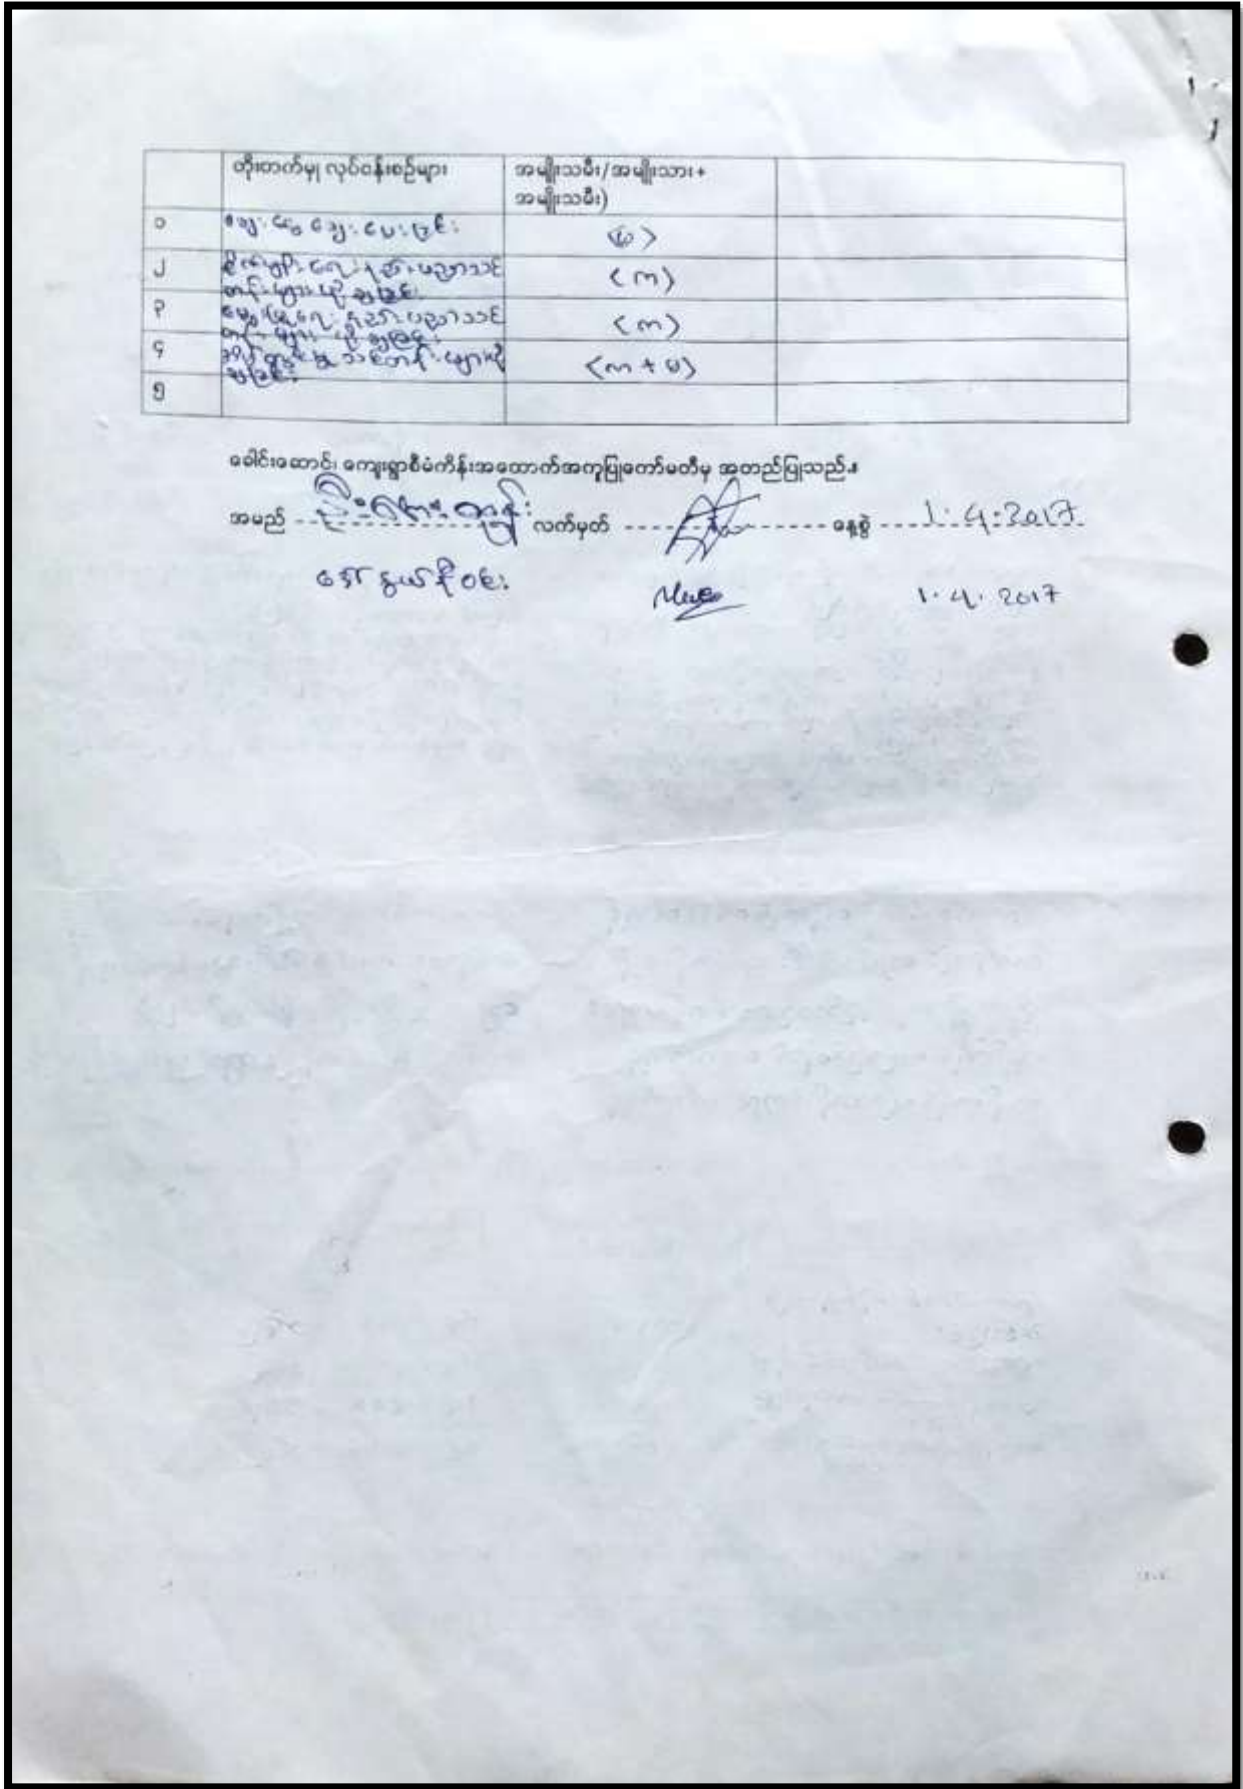 တိုးတက်မှု လုပ်ငန်းစဉ်များ
အမျိုးသမီး/အမျိုးသား+
အမျိုးသမီး)
၁ ချေးငွေ ချေးပေးခြင်း (မ)
၂ စိုက်ပျိုးရေး နည်းပညာသင် (က)
တန်းများ ပို့ချခြင်း
၃ မွေးမြူရေး နည်းပညာသင် (က)
တန်းများ ပို့ချခြင်း
၄ သင်တန်းများပို့ (က + မ)
ချခြင်း
၅
ခေါင်းဆောင်၊ ကျေးရွာစီမံကိန်းအထောက်အကူပြုကော်မတီမှ အတည်ပြုသည်။
အမည် ထွန်း လက်မှတ် နေ့စွဲ 1.4.2017
ဒေါ်နွယ်နီဝင်း 1.4.2017